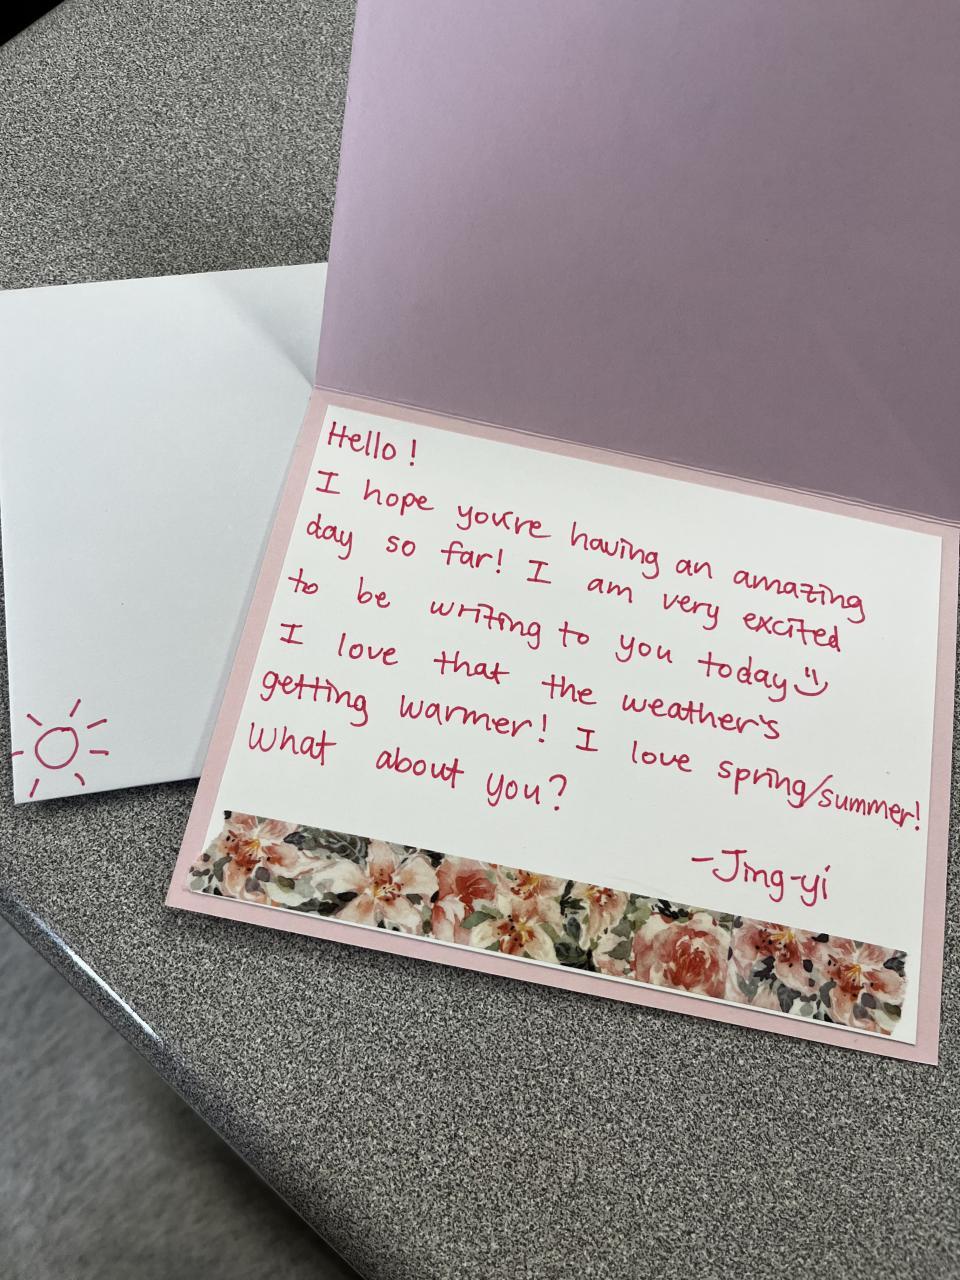 Hello!
I hope you're having an amazing
day so far! I am very excited
to be writing to you today
I love that the weather's
getting warmer! I love spring/summer!
What about you?
-Jing-yi